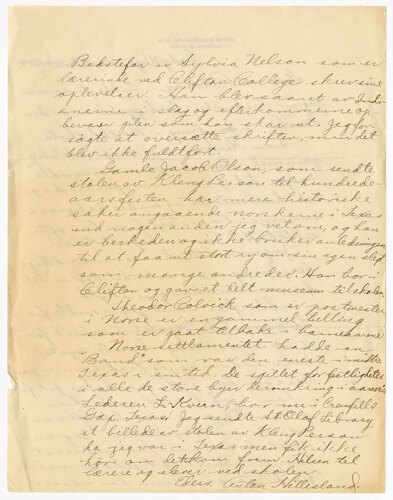 Bedstefar av Sylvia Nelson som er
lærerinde ved Clifton College skrev sine
oplevelser. Han blev saaret av Indi-
anerne i slag og efterkommerne op-
bevarer pilen som han skar ut. Jeg for-
søgte at oversætte skriften, men det
blev ikke fuldført.
Gamle Jacob Olson, som sendte
stolen av Kleng Person til hundrede-
aarsfesten har mere historiske
saker angaaende norskerne i Texas
end nogen anden jeg vet om, og han
er beskeden og ikke bruker anledningen
til at faa ut stort ry om sin egen slegt
som mange andre der. Han bor i
Clifton og gav et helt museum til skolen.
Theodor Colwick som er postmester
i Norse er en gammel telling
som er gaat tilbake i barnedommen
Norse settlementet hadde en
"Band" som var den eneste i midtre
Texas i sin tid. De spillet for festligheter
i alle de store byer deromkring i aarevis
Lederen L. Kvern, bor nu i Cranfills
Gap, Texas. Jeg sendte St. Olaf Library
et billede av stolen av Kleng Person
da jeg var i Texas men fik ikke
høre om det kom frem. Hilsen til
lærere og elever ved skolen.
Eders, Anton Hillesland.